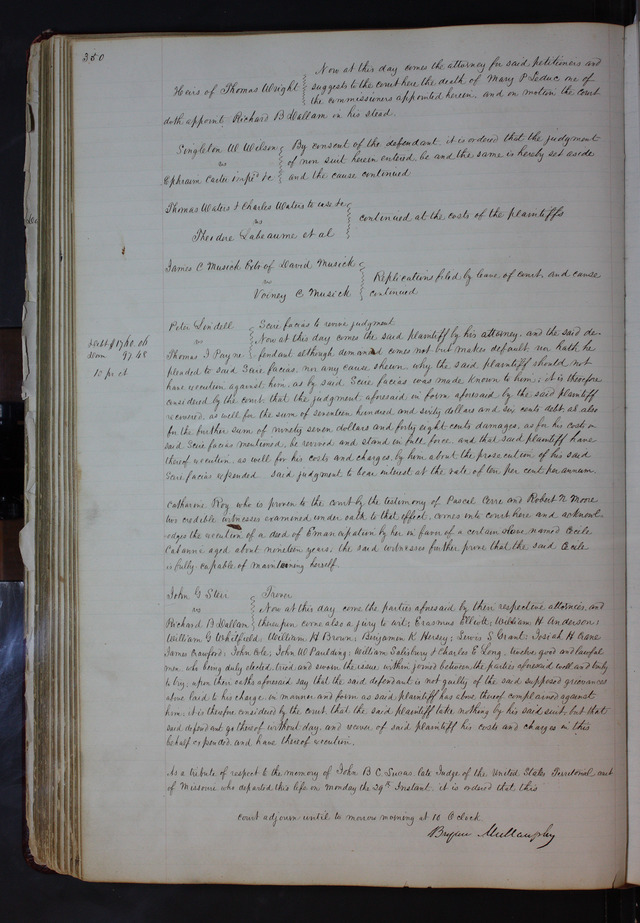 350
Now at this day comes the attorney for said petitioners and
Heirs of Thomas Wright suggests to the court here the death of Mary P Leduc one of
the commissioners appointed herein, and on motion the court
doth appoint Richard B Dallam in his stead.
Singleton W Wilson By consent of the defendant it is ordered that the judgment
vs of non suit herein entered be and the same is hereby set aside
Ephraim Carter imp &c and the cause continued
Thomas Waters & Charles Waters to use &c
vs continued at the costs of the plaintiffs
Theodore Labeaume et al
James C Musick Extr of David Musick
vs Replications filed by leave of court, and cause
Volney C Musick continued
Peter Lindell Scire facias to revive judgment
Debt $1760.06 vs Now at this day comes the said plaintiff by his attorney, and the said de-
Dam 97.48 Thomas J Payne fendant although demanded comes not but makes default, nor hath he
10 pr ct pleaded to said Scire facias, nor any cause shown why the said plaintiff should not
have execution against him, as by said Scire facias was made known to him; it is therefore
considered by the court that the judgment aforesaid in form aforesaid by the said plaintiff
recovered, as well for the sum of seventeen hundred and sixty dollars and six cents debt, as also
for the further sum of ninety seven dollars and forty eight cents damages, as for his costs in
said Scire facias mentioned, be revived and stand in full force and that said plaintiff have
thereof execution, as well for his costs and charges by him about the prosecution of his said
Scire facias expended said judgment to bear interest at the rate of ten per cent per annum.
Catharine Roy who is proven to the court by the testimony of Pascal Cerre and Robert N Moore
two credible witnesses examined under oath to that effect, comes into court here and acknowl-
edges the execution of a deed of Emancipation by her in favor of a certain slave named Cecile
Cabanne aged about nineteen years. the said witnesses further prove that the said Cecile
is fully capable of maintaining herself.
John G Steir Trover
vs Now at this day come the parties aforesaid by their respective attornies, and
Richard B Dallam thereupon come also a jury to wit; Erasmus Elliott; William H Anderson;
William G Whitfield; William H Brown; Benjamin K Hersey; Lewis S Grant; Josiah H Cane
James Crawford; John Cole; John W Paulding; William Salisbury & Charles E Long, twelve good and lawful
men, who being duly elected, tried and sworn the issue within joined between the parties aforesaid well and truly
to try, upon their oaths aforesaid say that the said defendant is not guilty of the said supposed grievances
above laid to his charge, in manner and form as said plaintiff has above thereof complained against
him, it is therefore considered by the court that the said plaintiff take nothing by his said suit, but that
said defendant go thereof without day and recover of said plaintiff his costs and charges in this
behalf expended, and have thereof execution.
As a tribute of respect to the memory of John B C Lucas late Judge of the United States Territorial court
of Missouri who departed this life on Monday the 29th Instant. it is ordered that this
court adjourn until to morrow morning at 10 O clock
Bryan Mullanphy